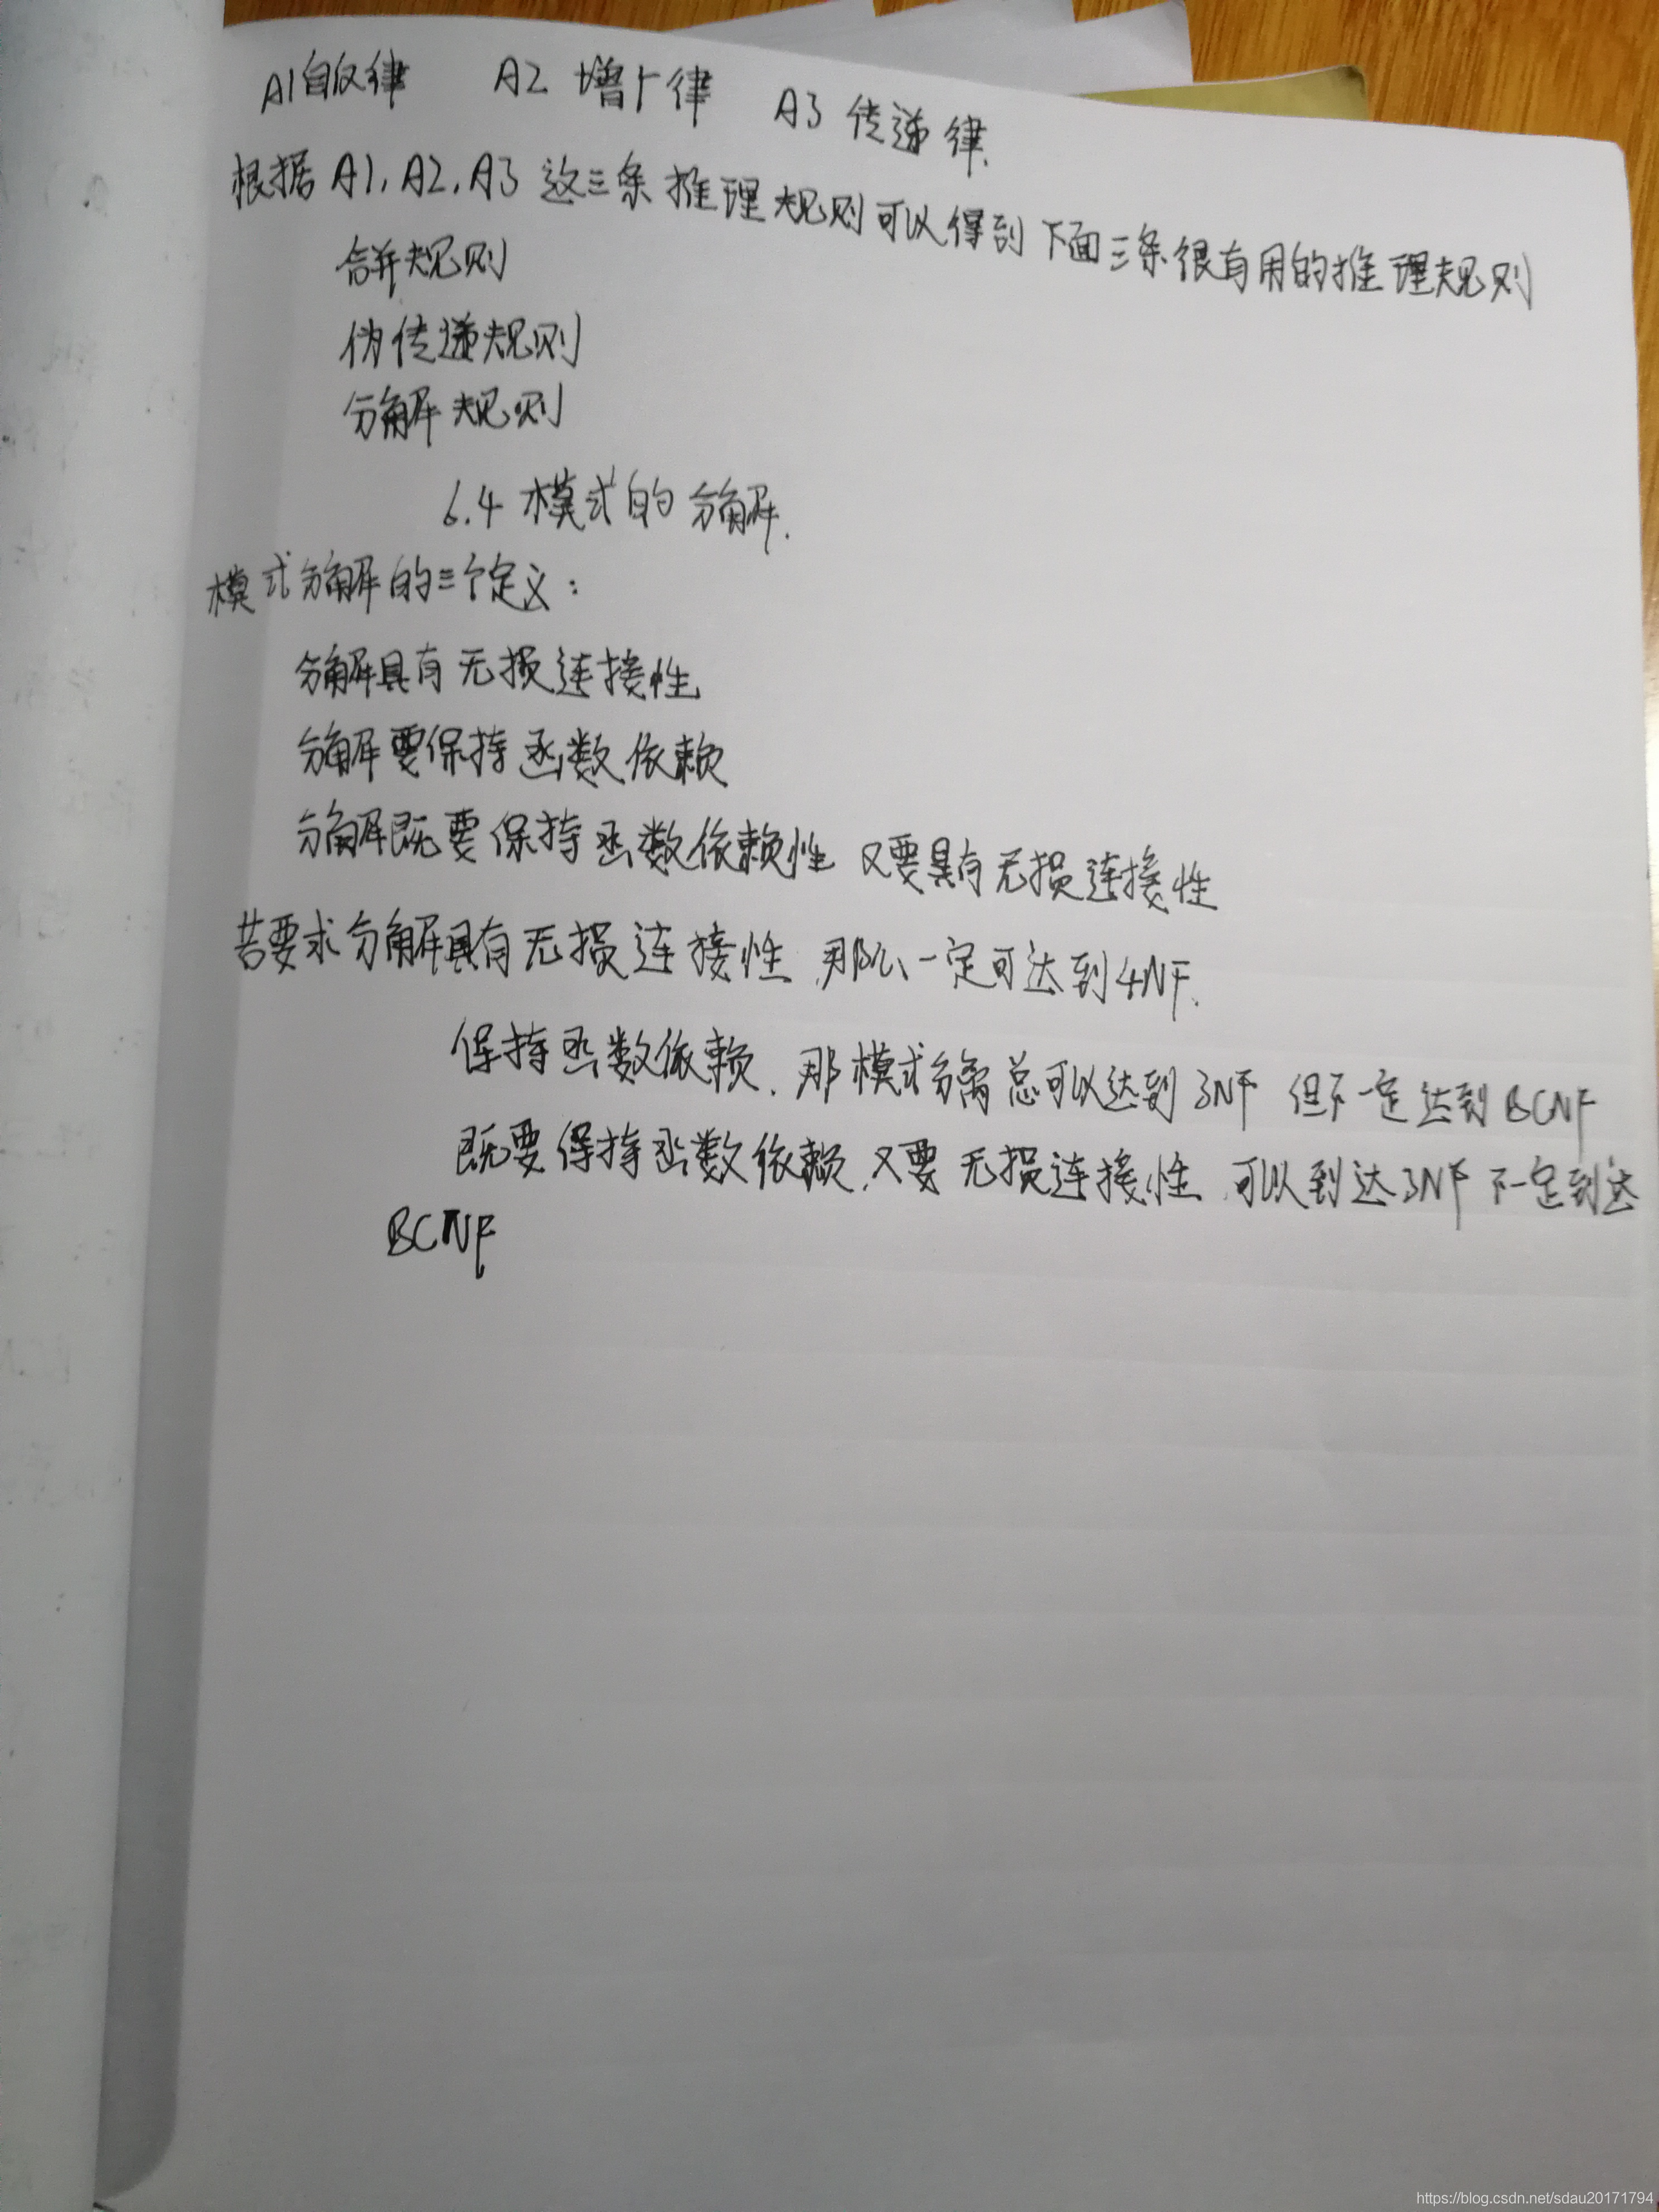 A1自反律 A2 增广律 A3 传递律.
根据 A1, A2, A3 这三条推理规则可以得到下面三条很有用的推理规则
合并规则
伪传递规则
分解规则
6.4 模式的分解.
模式分解的三个定义:
分解具有无损连接性
分解要保持函数依赖
分解既要保持函数依赖性 又要具有无损连接性
若要求分解具有无损连接性, 那么一定可达到4NF.
保持函数依赖, 那模式分离总可以达到3NF 但不一定达到BCNF
既要保持函数依赖, 又要无损连接性, 可以到达3NF 不一定到达
BCNF
https://blog.csdn.net/sdau20171794